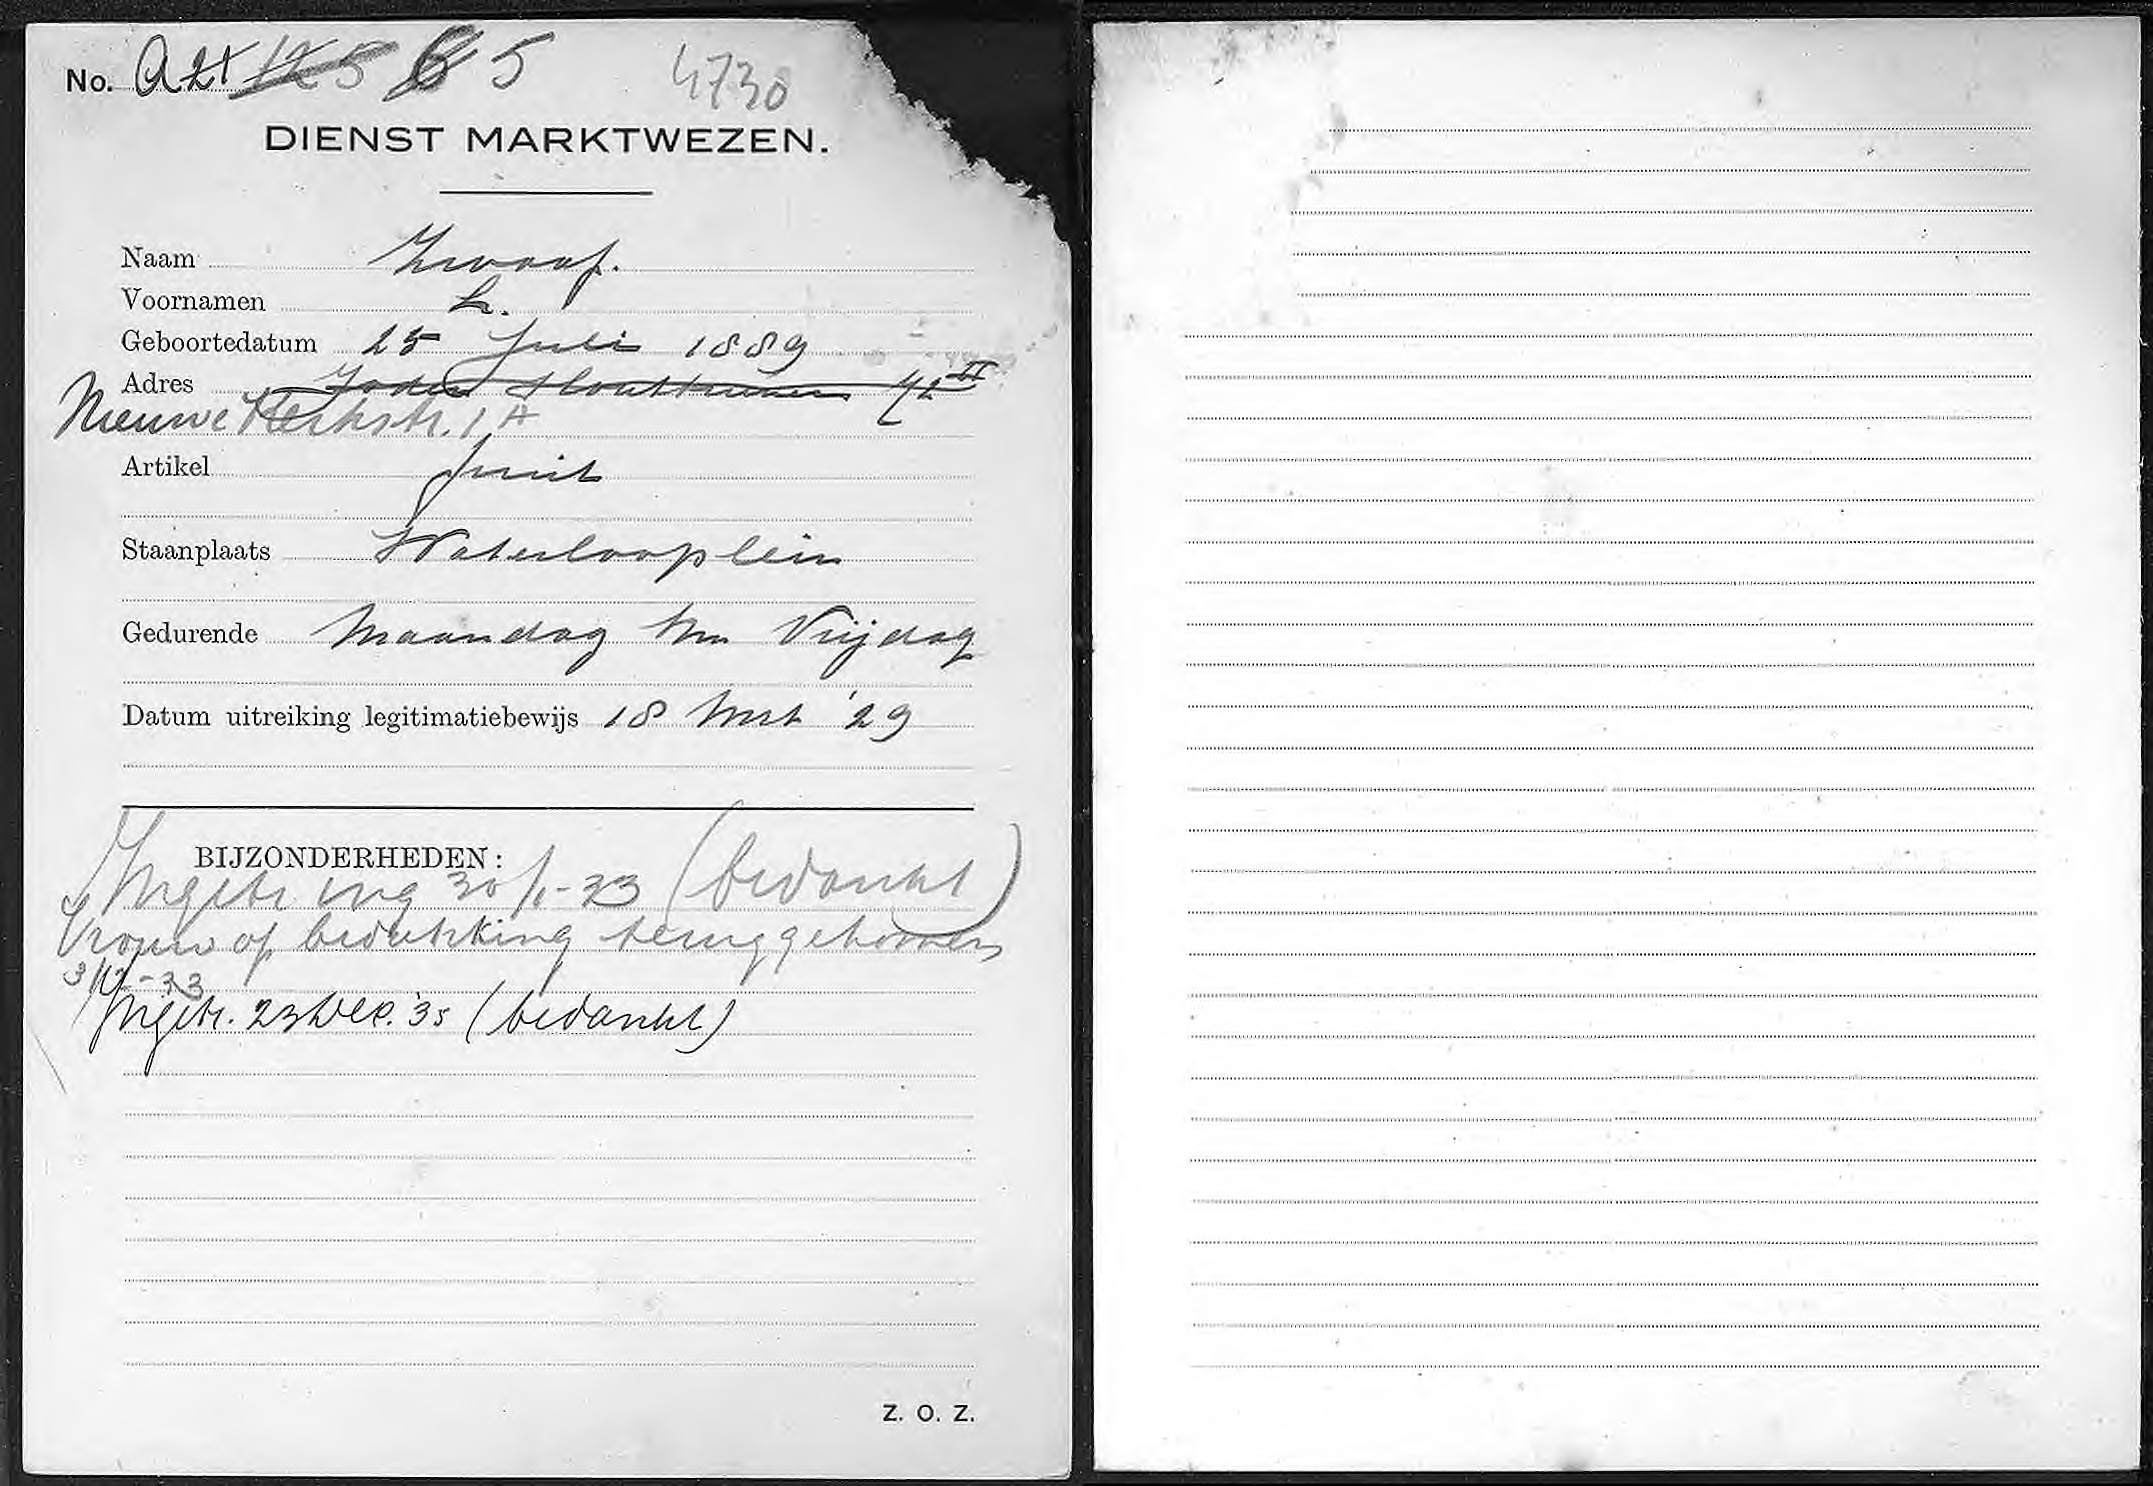 No. A 21 125 6 5 4730
DIENST MARKTWEZEN.
Naam Zwaaf.
Voornamen L.
Geboortedatum 25 Juli 1889
Adres Joden Houttuinen 72 II
Nieuwe Kerkstr. 1 A
Artikel fruit
Staanplaats Waterlooplein
Gedurende Maandag tm Vrijdag
Datum uitreiking legitimatiebewijs 18 Mrt '29
BIJZONDERHEDEN:
Ingetr. ing 30/1-33 (bedankt)
Vrouw of bedekking teruggekomen
3/12-33
Ingetr. 23 Dec. '35 (bedankt)
Z. O. Z.